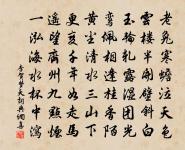 老兔寒蟾泣天色
雲樓半開壁斜白
玉輪軋露濕團光
鸞佩相逢桂香陌
黃塵清水三山下
更變千年如走馬
遙望齊州九點煙
一泓海水杯中瀉
李賀夢天詞典網